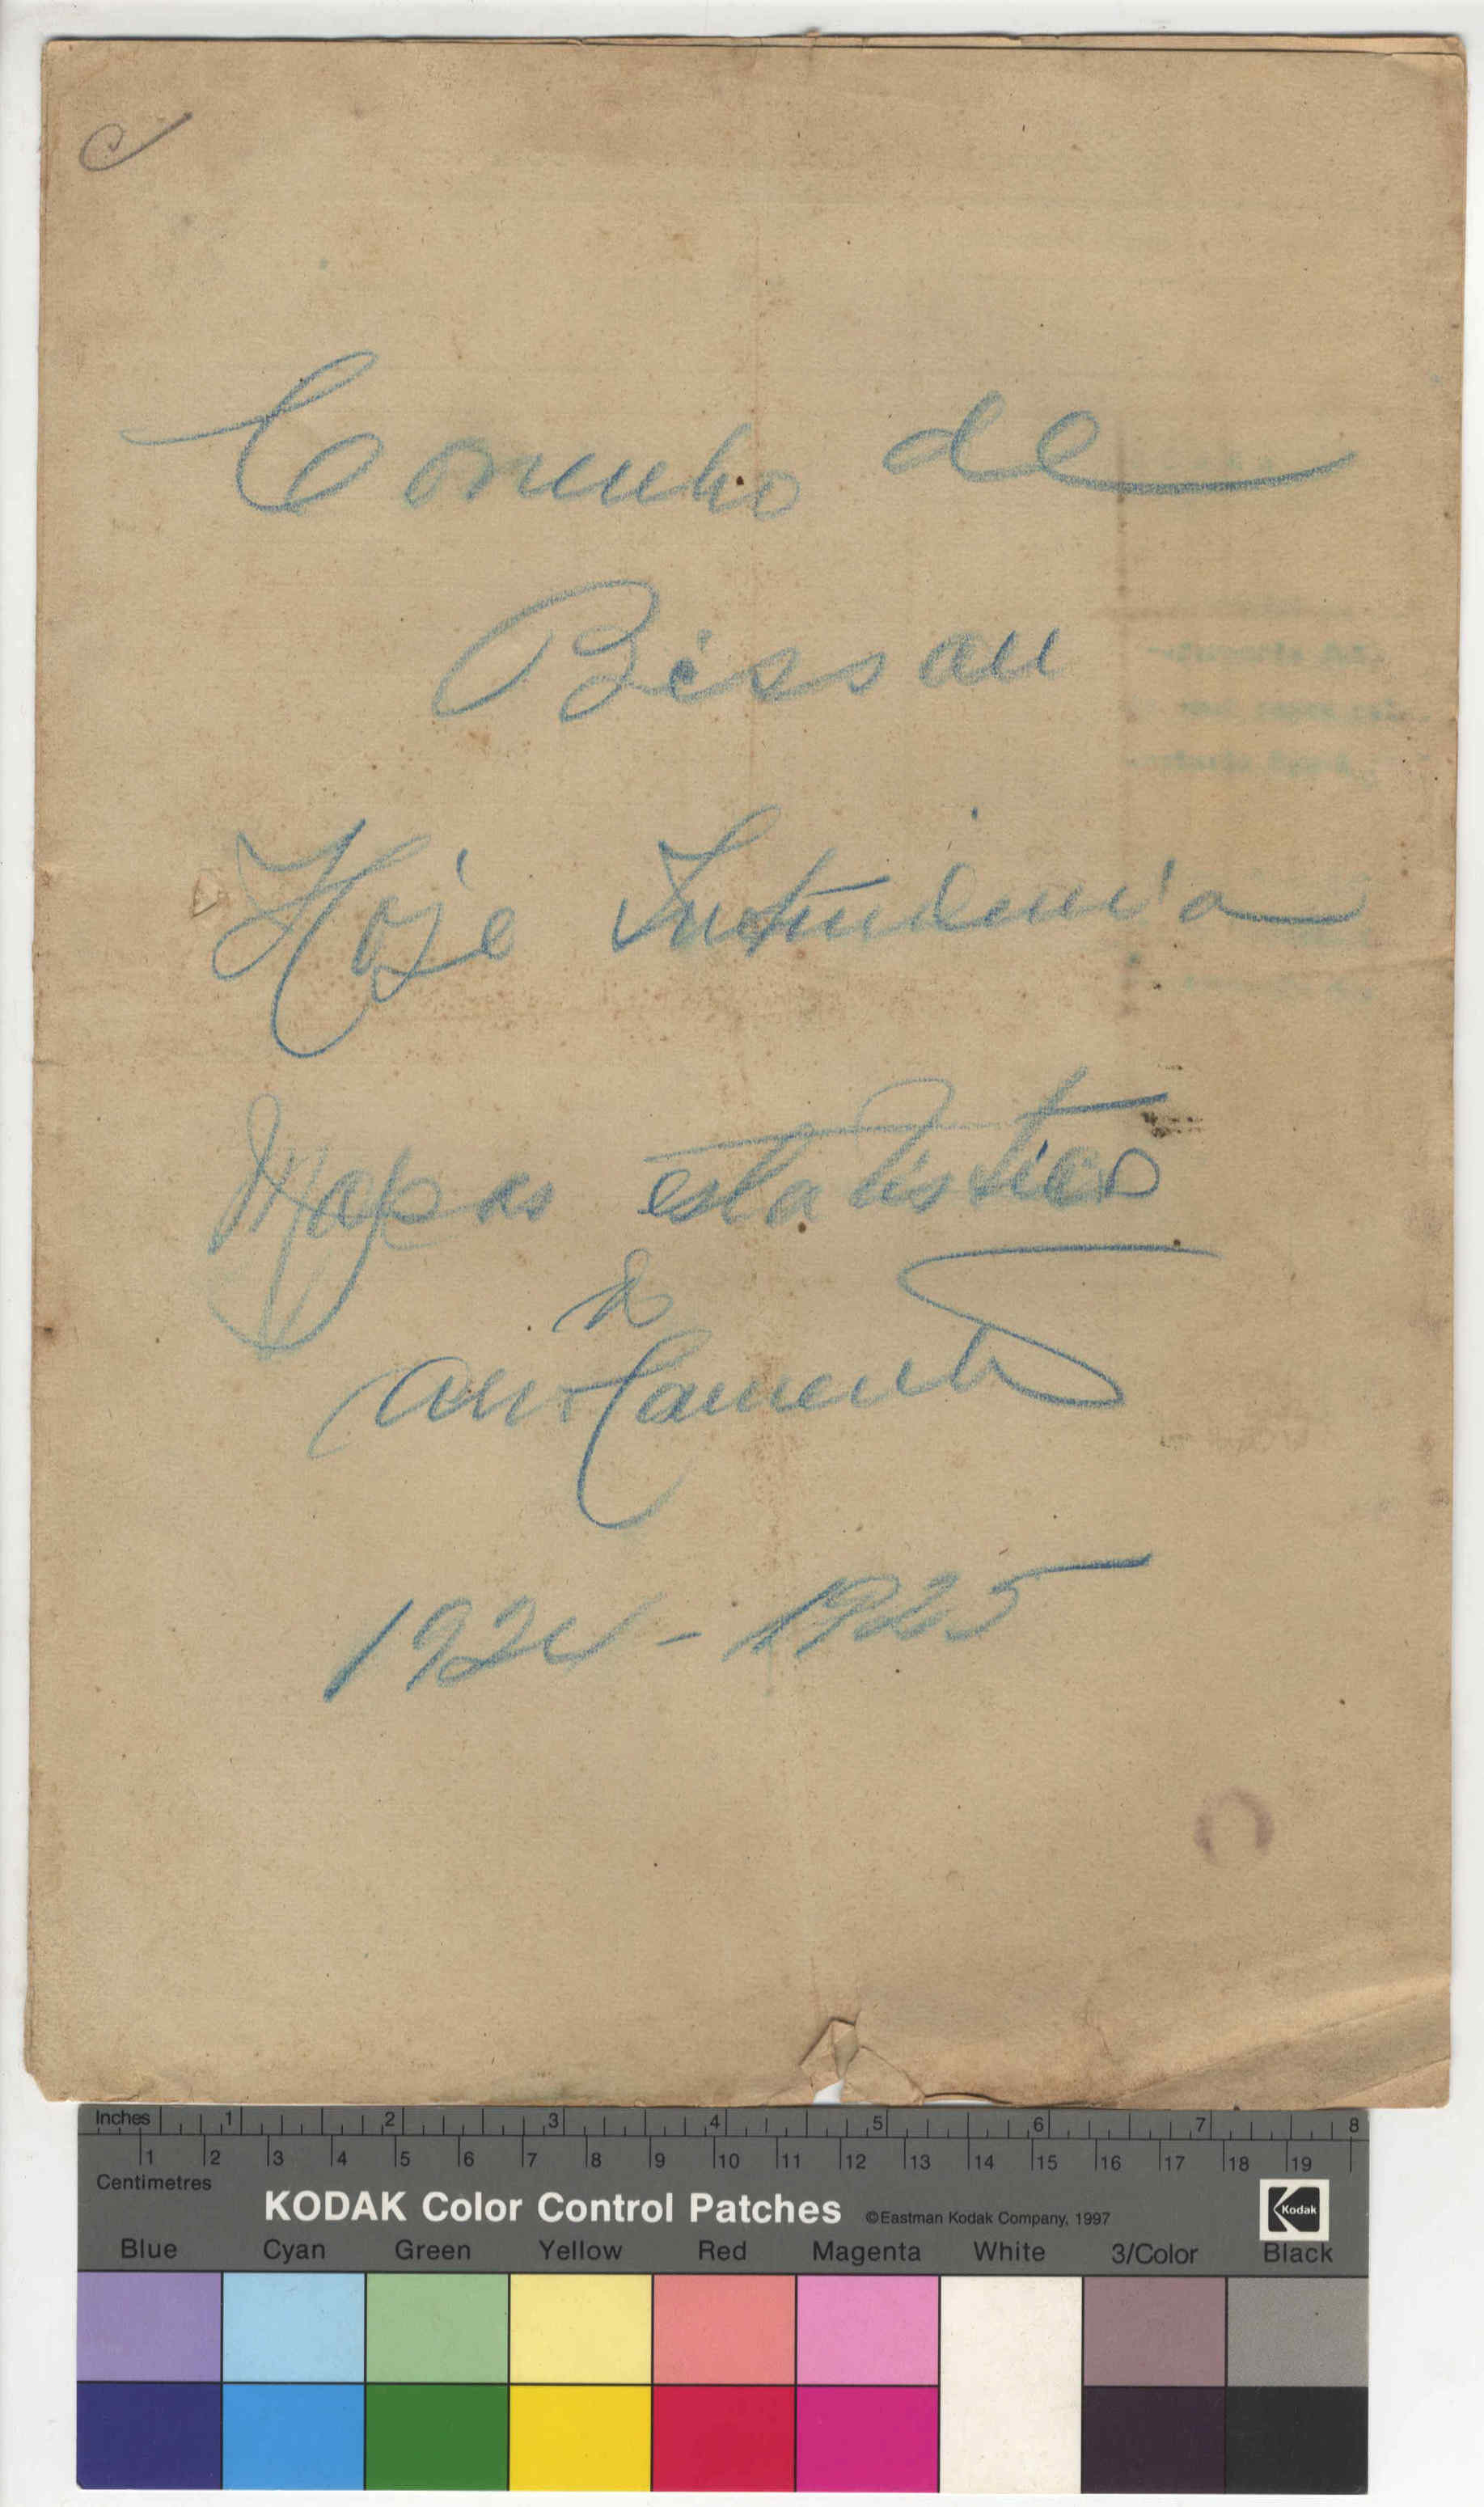 Concelho de
Bissau
Hoje Intendencia
Mapas estatisticos
de
arrolamento
1924 - 1925
Inches 1 2 3 4 5 6 7 8
1 2 3 4 5 6 7 8 9 10 11 12 13 14 15 16 17 18 19
Centimetres
KODAK Color Control Patches ©Eastman Kodak Company, 1997 Kodak
Blue Cyan Green Yellow Red Magenta White 3/Color Black